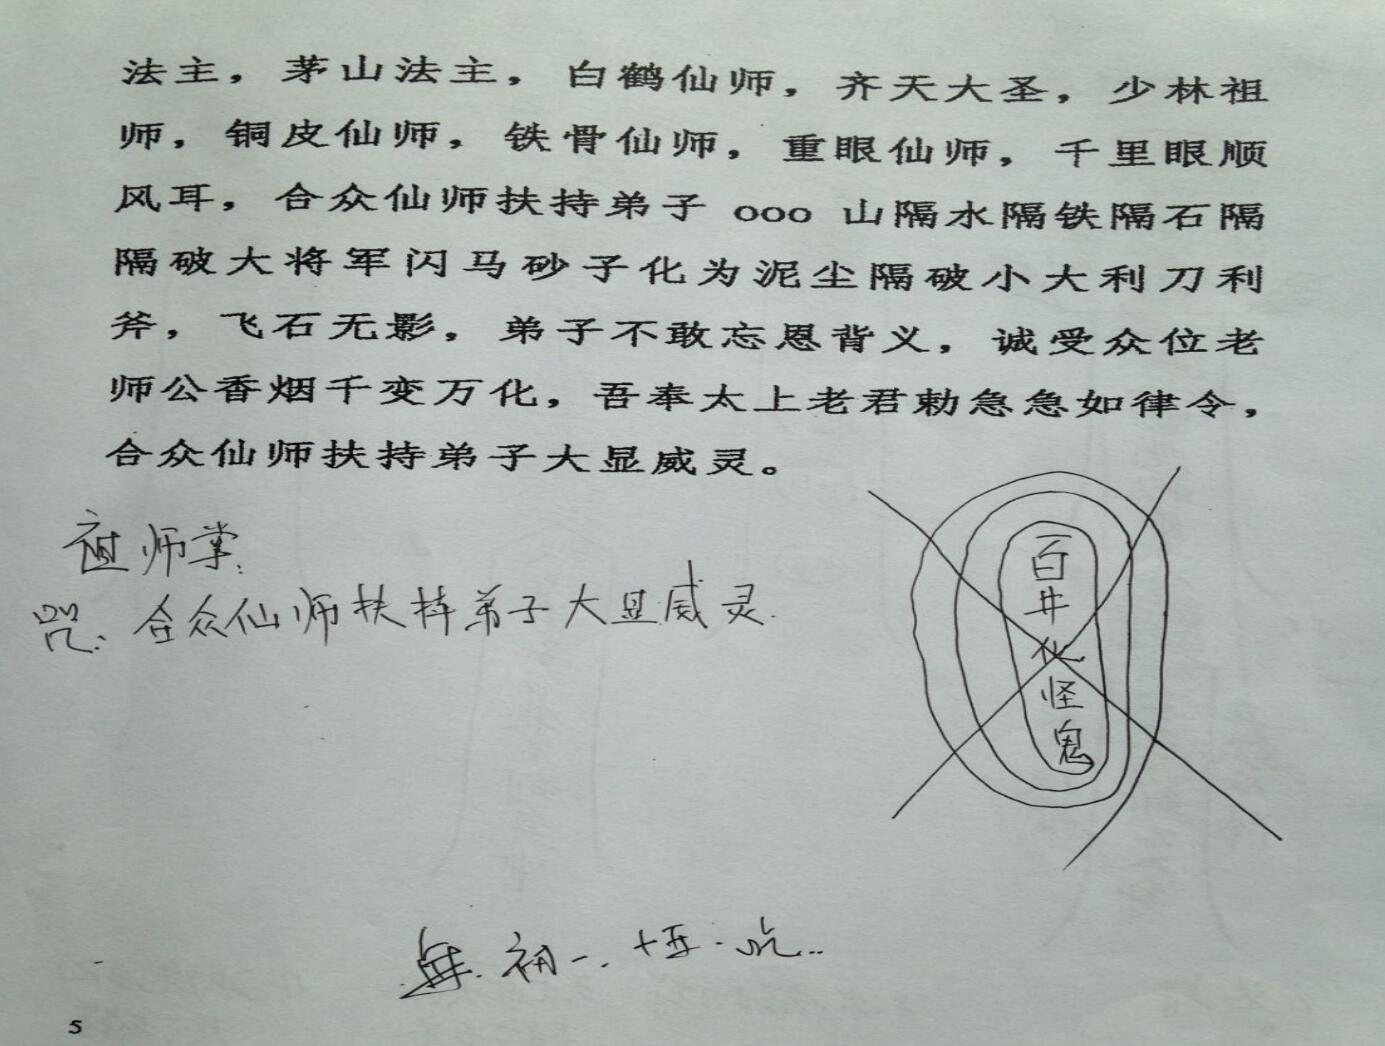 法主，茅山法主，白鹤仙师，齐天大圣，少林祖
师，铜皮仙师，铁骨仙师，重眼仙师，千里眼顺
风耳，合众仙师扶持弟子 ooo 山隔水隔铁隔石隔
隔破大将军闪马砂子化为泥尘隔破小大利刀利
斧，飞石无影，弟子不敢忘恩背义，诚受众位老
师公香烟千变万化，吾奉太上老君勅急急如律令，
合众仙师扶持弟子大显威灵。
祖师掌：
咒：合众仙师扶持弟子大显威灵.
百
井
化
怪
鬼
初一.十五.吃..
5